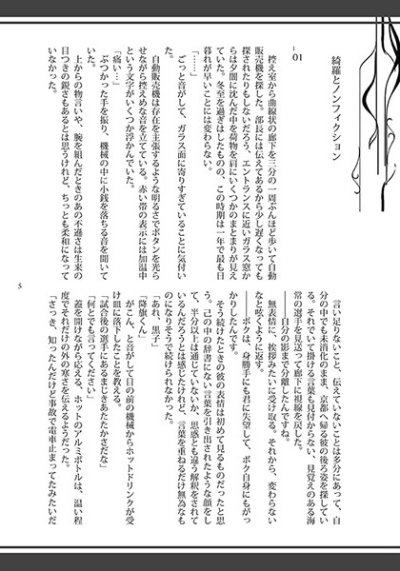 綺羅とノンフィクション
－01
　控え室から曲線状の廊下を三分の一周ぶんほど歩いて自動
販売機を探した。部長には伝えてあるから少し遅くなっても
探されたりもしないだろう、エントランスに近いガラス窓か
らは夕闇に沈んだ中を荷物を肩にいくつかのまとまりが見え
ていた。冬至を過ぎはしたものの、この時期は一年で最も日
暮れが早いことには変わらない。
「……」
　ごっと音がして、ガラス面に寄りすぎていることに気付い
た。
　自動販売機は存在を主張するような明るさでボタンを光ら
せながら控えめな音を立てている。赤い帯の表示には加温中
という文字がいくつか浮かんでいた。
「痛い…」
　ぶつかった手を振り、機械の中に小銭を落ちる音を聞いて
いた。
　上からの物言いや、腕を組んだときのあの不遜さは生来の
目つきの鋭さもあるとは思うけれど、ちっとも柔和になって
いなかった。
　言い足りないこと、伝えていないことは多分にあって、自
分の中でも未消化のまま、京都へ帰る彼の後ろ姿を探してい
る。それでいて掛ける言葉も見付からない、見覚えのある海
常の選手を見送って廊下に視線を戻した。
――自分の影まで分離したんですね。
　無表情に、挨拶みたいに受け取る。それから、変わらない
なと呟くように返す。
――ボクは、身勝手にも君に失望して、ボク自身にもがっ
かりしたんです。
　そう続けたときの彼の表情は初めて見るものだったと思
う。己の中の辞書にない言葉を引き出されたような顔をし
て、半分以上は通じていないか、思惑とも違う解釈をされて
いるんだろうとは感じたけれど、言葉を重ねるだけ無為なも
のになりそうで続けられなかった。
「あれ、黒子」
「降旗くん」
　がこん、と音がして目の前の機械からホットドリンクが受
け皿に落下したことを教える。
「試合後の選手にあるまじきあたたかさだな」
「何とでも言ってください」
　蓋を開けながら応える、ホットのアルミボトルは、温い程
度でそれだけの外の寒さを伝えるようだった。
「さっき、知ったんだけど事故で電車止まってたみたいだ
5